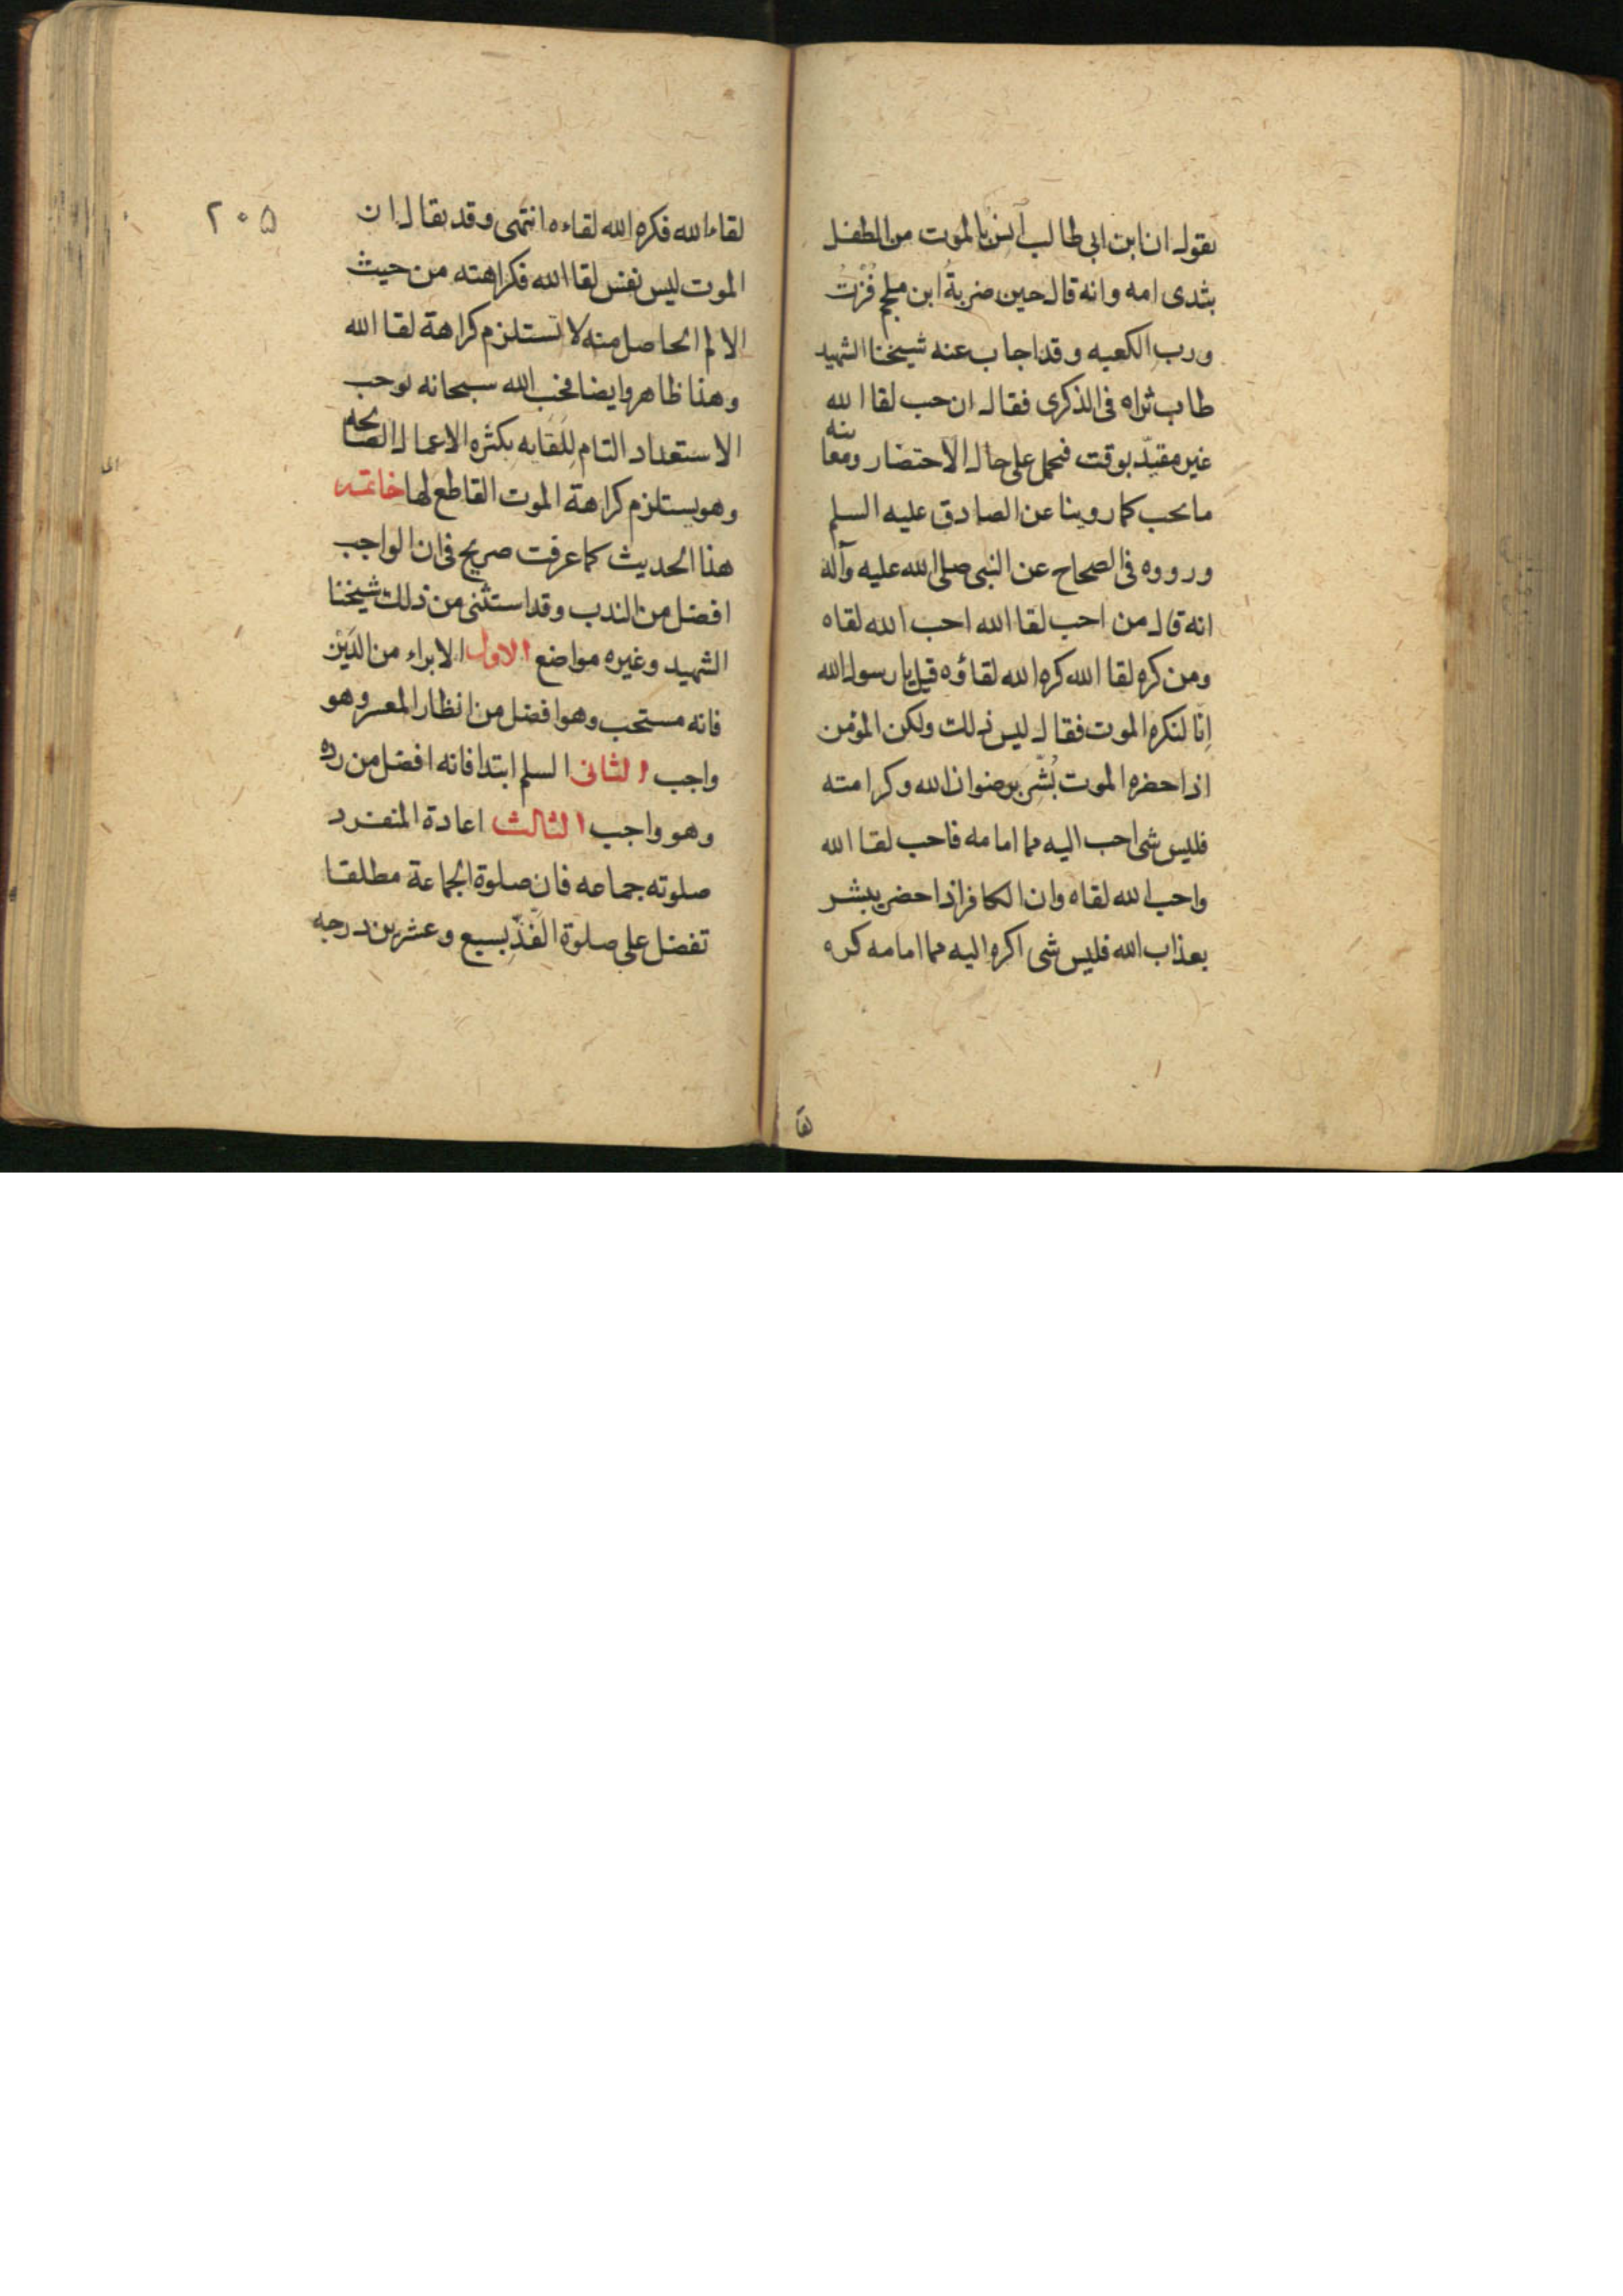 يقول ان ابن ابي طالب آنس بالموت من الطفل
بثدى امه وانه قال حين ضربة ابن ملجم فُزْتُ
ورب الكعبه وقد اجاب عنه شيخنا الشهيد
طاب ثراه فى الذكرى فقال ان حب لقا الله
غير مقيّد بوقت فيحمل على حال الاحتضار ومعاينه
ما يحب كما روينا عن الصادق عليه السلم
ورووه فى الصحاح عن النبى صلى الله عليه وآله
انه قال من احب لقا الله احب الله لقاه
ومن كره لقا الله كره الله لقاؤه قيل يا رسول الله
اِنّا لنكره الموت فقال ليس ذلك ولكن المؤمن
اذا حضره الموت بُشّر برضوان الله وكرامته
فليس شى احب اليه مما امامه فاحب لقا الله
واحب الله لقاه وان الكافر اذا حضر يبشر
بعذاب الله فليس شى اكره اليه مما امامه كره
لقا
٢٠۵
لقاء الله فكره الله لقاءه انتهى وقد يقال ان
الموت ليس نفس لقا الله فكراهته من حيث
الالم الحاصل منه لا تستلزم كراهة لقا الله
وهذا ظاهر وايضا فحب الله سبحانه يوجب
الاستعداد التام للقايه بكثره الاعمال الصالحه
وهو يستلزم كراهة الموت القاطع لها خاتمه
هذا الحديث كما عرفت صريح فى ان الواجب
افضل من الندب وقد استثنى من ذلك شيخنا
الشهيد وغيره مواضع الاول الابراء من الدَيْن
فانه مستحب وهو افضل من انظار المعسر وهو
واجب الثانى السلم ابتدا فانه افضل من رده
وهو واجب الثالث اعادة المنفرد
صلوته جماعه فان صلوة الجماعة مطلقا
تفضل على صلوة الفذّ بسبع وعشرين درجه